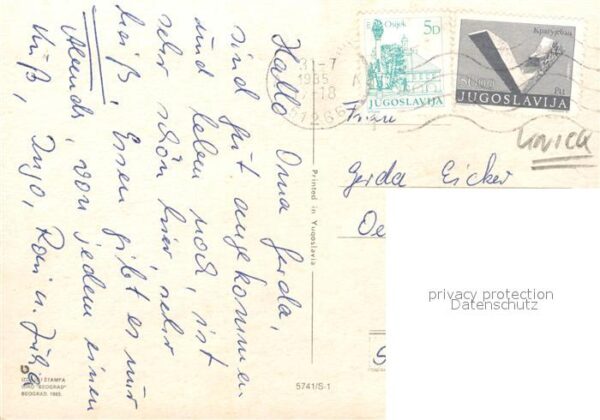 Hallo Oma Gerda,
sind gut angekommen
und leben noch, ist
sehr schön hier, sehr
heiß. Essen gibt es nur
Abends, von jedem einen
Kuß, Ingo, Roni u. Julia
Osijek
5D
JUGOSLAVIJA
Крагујевац
JUGOSLAVIJA
31-7
1985
18
Frau
Gerda Eicker
Oe
Printed in Yugoslavia
privacy protection
Datenschutz
5741/S-1
ŠTAMPA
"BEOGRAD"
BEOGRAD, 1983.